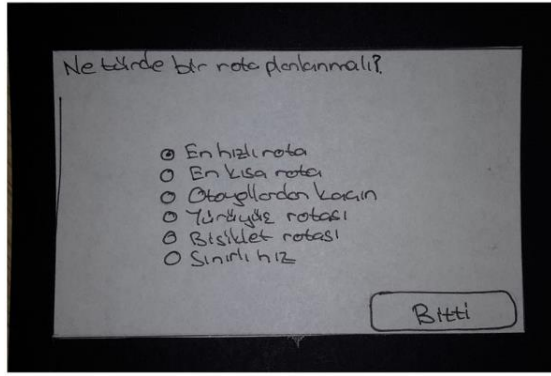 Ne türde bir rota planlanmalı?
En hızlı rota
En kısa rota
Otoyollardan kaçın
Yürüyüş rotası
Bisiklet rotası
Sınırlı hız
Bitti